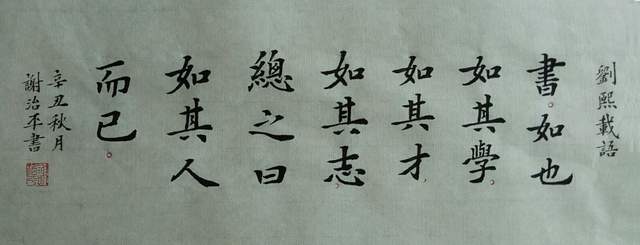 劉熙載語
書。如也
如其學。
如其才，
如其志。
總之曰
如其人
而已。
辛丑秋月
謝治平書